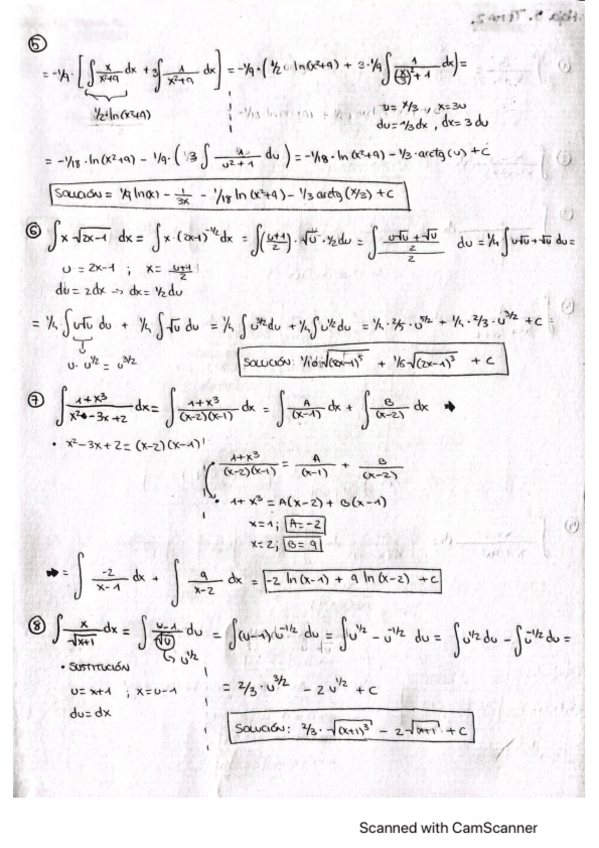 ⑤
= -1/9 · [∫ x/(x²+9) dx + 3∫ 1/(x²+9) dx] = -1/9 · (1/2 · ln(x²+9) + 3·1/9 ∫ 1/((x/3)²+1) dx) =
1/2 · ln(x²+9)
u = x/3 , x = 3u
du = 1/3 dx , dx = 3 du
= -1/18 · ln(x²+9) - 1/9 · (1/3 ∫ 1/(u²+1) du) = -1/18 · ln(x²+9) - 1/3 · arctg(u) + C
SOLUCIÓN = 1/9 ln(x) - 1/3x - 1/18 ln(x²+9) - 1/3 arctg(x/3) + C
⑥ ∫ x √(2x-1) dx = ∫ x · (2x-1)^(-1/2) dx = ∫ (u+1)/2 · √u · 1/2 du = ∫ (u√u + √u)/(2/2) du = 1/4 ∫ u√u + √u du =
u = 2x-1 ; x = (u+1)/2
du = 2dx → dx = 1/2 du
= 1/4 ∫ u√u du + 1/4 ∫ √u du = 1/4 ∫ u^(3/2) du + 1/4 ∫ u^(1/2) du = 1/4 · 2/5 · u^(5/2) + 1/4 · 2/3 · u^(3/2) + C =
u · u^(1/2) = u^(3/2)
SOLUCIÓN: 1/10 √(2x-1)^5 + 1/6 √(2x-1)³ + C
⑦ ∫ (1+x³)/(x²-3x+2) dx = ∫ (1+x³)/((x-2)(x-1)) dx = ∫ A/(x-1) dx + ∫ B/(x-2) dx →
• x²-3x+2 = (x-2)(x-1)
(1+x³)/((x-2)(x-1)) = A/(x-1) + B/(x-2)
• 1+x³ = A(x-2) + B(x-1)
x=1; A=-2
x=2; B=9
→ = ∫ -2/(x-1) dx + ∫ 9/(x-2) dx = -2 ln(x-1) + 9 ln(x-2) + C
⑧ ∫ x/√(x+1) dx = ∫ (u-1)/√u du = ∫ (u-1) u^(-1/2) du = ∫ u^(1/2) - u^(-1/2) du = ∫ u^(1/2) du - ∫ u^(-1/2) du =
u^(1/2)
• SUSTITUCIÓN
u = x+1 ; x = u-1
du = dx
= 2/3 · u^(3/2) - 2 u^(1/2) + C
SOLUCIÓN: 2/3 · √(x+1)³ - 2√(x+1) + C
Scanned with CamScanner